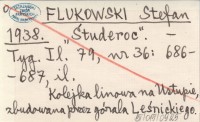 FLUKOWSKI Stefan
1938. "Studeroc". –
Tyg. Il. 79, nr 36: 686-
-687, il.
Kolejka linowa na Ustupie,
zbudowana przez górala Leśnickiego.